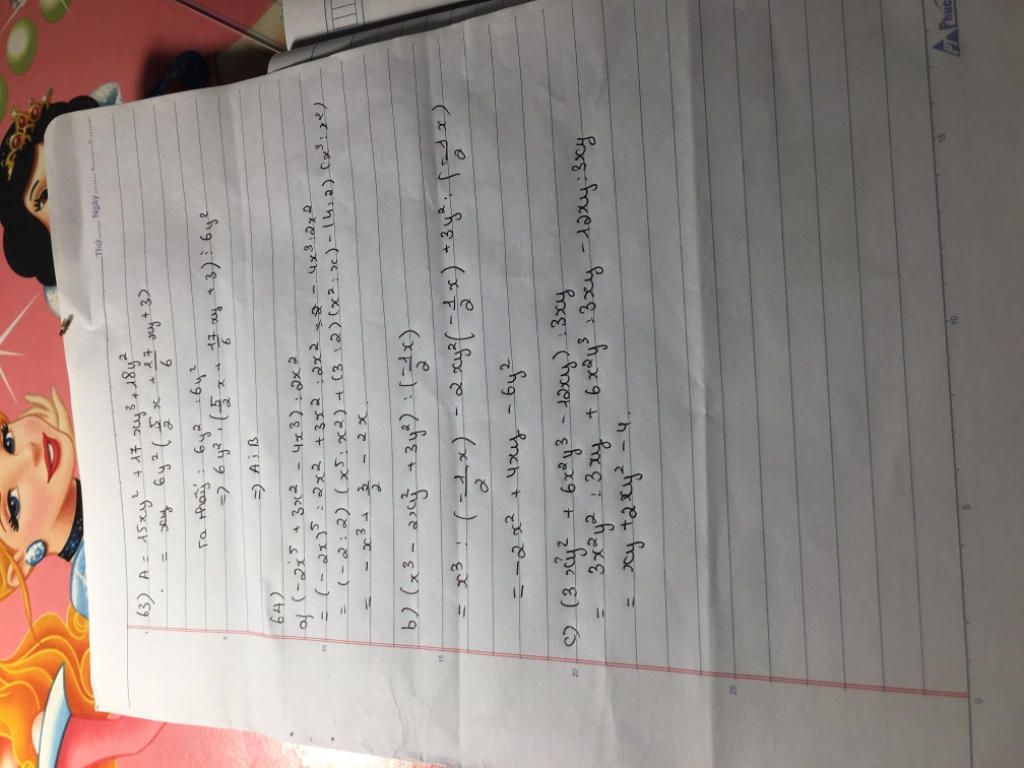 Thứ....... Ngày.......
63) A = 15xy² + 17xy³ + 18y²
= 6y² (5/2 x + 17/6 xy + 3)
Ta thấy: 6y² : 6y²
=> 6y² . (5/2 x + 17/6 xy + 3) : 6y²
=> A : B
64)
a) (-2x⁵ + 3x2 - 4x3) : 2x2
= (-2x)⁵ : 2x2 + 3x2 : 2x2 - 4x³ : 2x2
= (-2 : 2) (x⁵ : x2) + (3 : 2) (x² : x) - (4 : 2) (x³ : x²)
= - x³ + 3/2 - 2x.
b) (x3 - 2xy² + 3y²) : (-1/2 x)
= x³ : (-1/2 x) - 2xy² (-1/2 x) + 3y² : (-1/2 x)
= -2x² + 4xy - 6y²
c) (3x²y² + 6x2y3 - 12xy) : 3xy
= 3x2y² : 3xy + 6x2y³ : 3xy - 12xy : 3xy
= xy + 2xy² - 4.
5
10
15
20
25
0
5
10
15